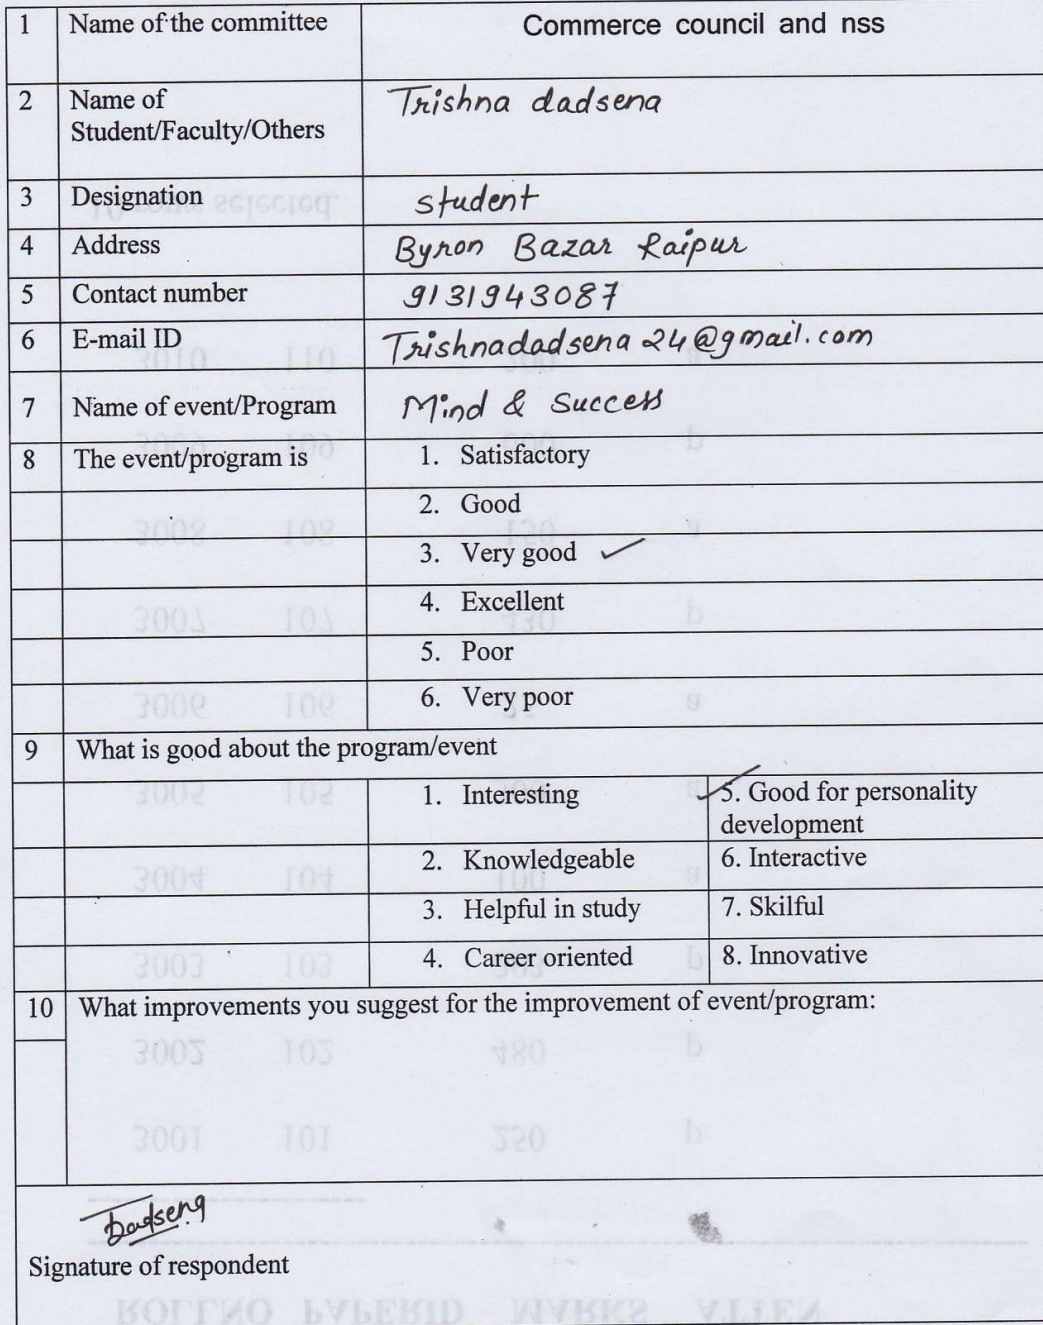 1 Name of the committee Commerce council and nss
2 Name of Student/Faculty/Others Trishna dadsena
3 Designation student
4 Address Byron Bazar Raipur
5 Contact number 9131943087
6 E-mail ID Trishnadadsena24@gmail.com
7 Name of event/Program Mind & Success
8 The event/program is 1. Satisfactory
2. Good
3. Very good ✓
4. Excellent
5. Poor
6. Very poor
9 What is good about the program/event
1. Interesting ✓5. Good for personality
development
2. Knowledgeable 6. Interactive
3. Helpful in study 7. Skilful
4. Career oriented 8. Innovative
10 What improvements you suggest for the improvement of event/program:
Dadsena
Signature of respondent